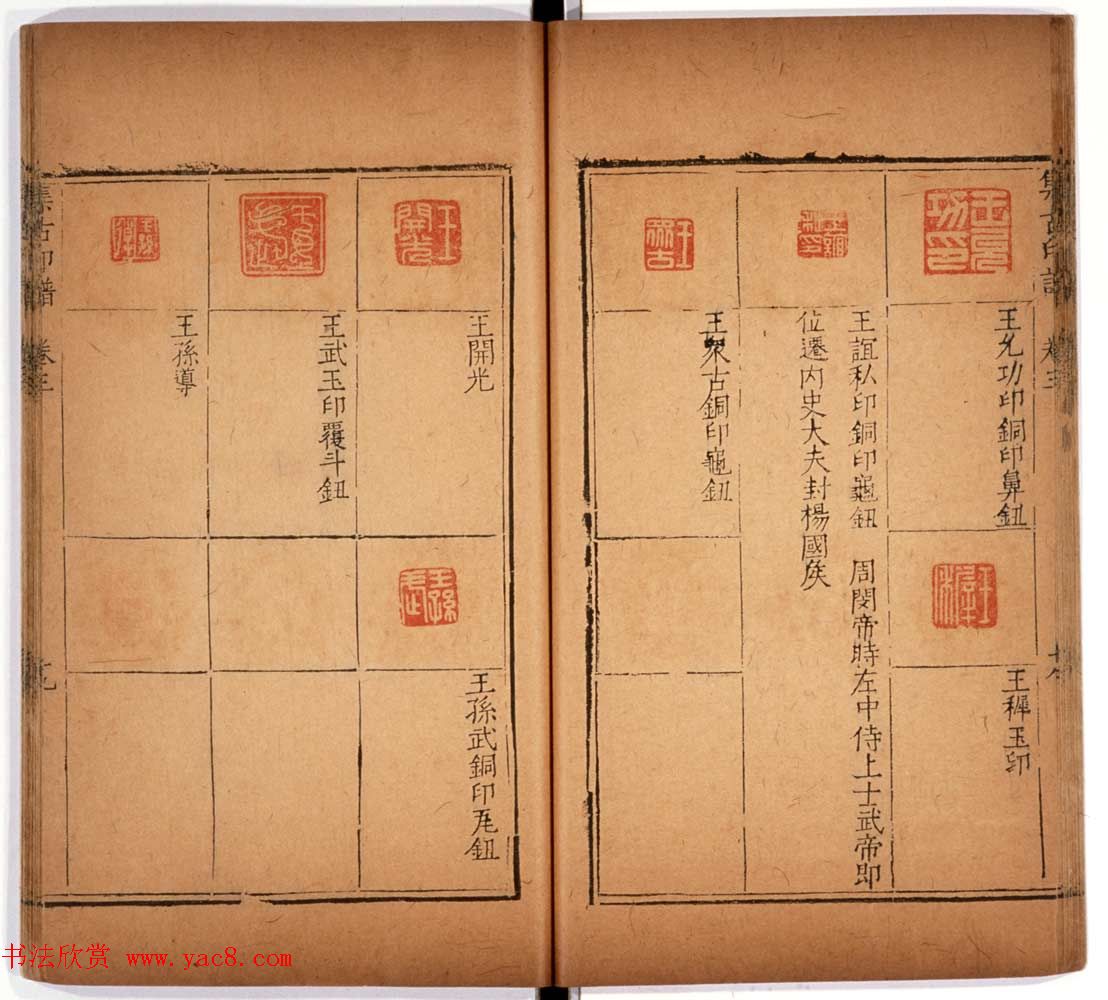 集古印譜 卷三
王允功印銅印鼻鈕
王穉玉印
王誼私印銅印龜鈕 周閔帝時左中侍上士武帝即
位遷内史大夫封楊國侯
王眾古銅印龜鈕
王開光
王孫武銅印瓦鈕
王武玉印覆斗鈕
王孫導
集古印譜 卷三
书法欣赏 www.yac8.com